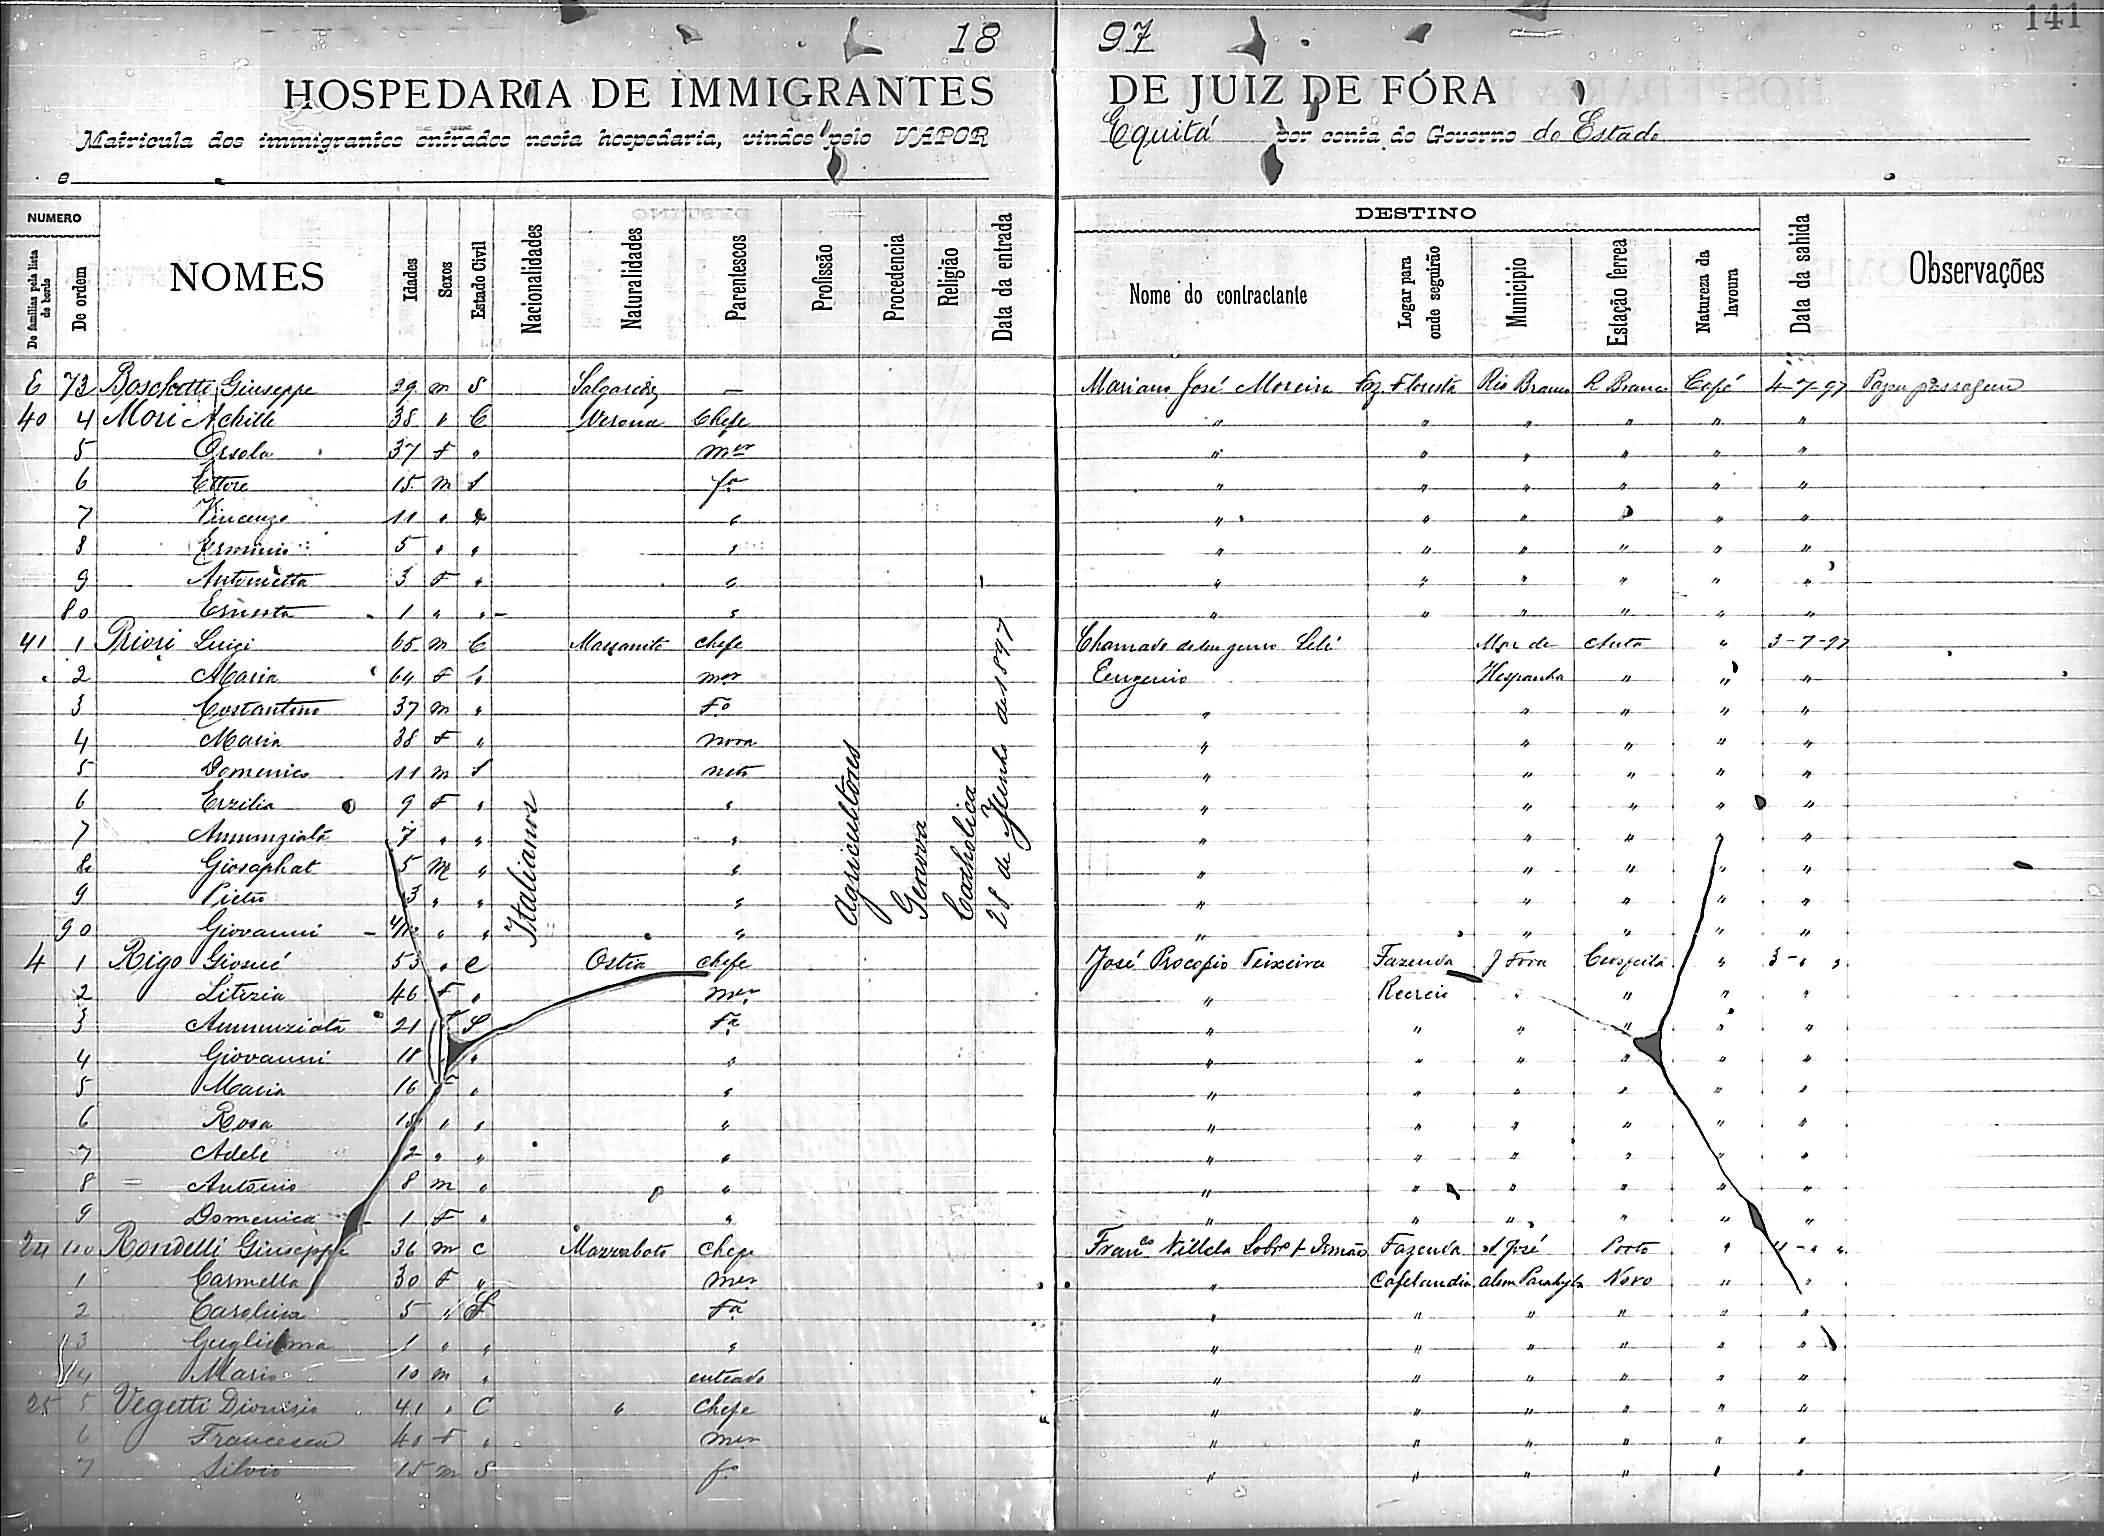 141
18 97
HOSPEDARIA DE IMMIGRANTES DE JUIZ DE FÓRA
Matricula dos immigrantes entrados nesta hospedaria, vindos pelo VAPOR Equitá por conta do Governo do Estado
e
NUMERO DESTINO
De familias pela lista de bordo De ordem NOMES Idades Sexos Estado Civil Nacionalidades Naturalidades Parentescos Profissão Procedencia Religião Data da entrada Nome do contractante Logar para onde seguirão Municipio Estação ferrea Natureza da lavoura Data da sahida Observações
Italianos Agricultores Genova Catholica 28 de Junho de 1897
E 73 Boschetti Giuseppe 29 m S — Mariano José Moreira Faz. Floresta Rio Branco R Branco Café 4-7-97 Pagou passagem
40 4 Mori Achille 38 " C Verona Chefe " " " " " "
5 Orsola 37 F " mer " " " " " "
6 Ettore 15 m S fo " " " " " "
7 Vincenzo 11 " " " " " " " "
8 Erminio 5 " " " " " " " " "
9 Antonietta 3 F " " " " " " " "
80 Ernesta 1 " " " " " " " " "
41 1 Priori Luigi 65 m C chefe Chamado de seu genro Mar de " 3-7-97
2 Maria 64 F " mer Eugenio Hespanha " " "
3 Costantino 37 m " Fo " " " " "
4 Maria 38 F " nora " " " " "
5 Domenico 11 m S neto " " " " "
6 Erzilia 9 F " " " " " " "
7 Annunziata 7 " " " " " " " "
8 Giosaphat 5 m " " " " " " "
9 Pietro 3 " " " " " " " "
90 Giovanni " " " " " " " "
4 1 Rigo Giosué 53 " C Ostia chefe José Procopio Teixeira Fazenda J Fóra " 3 " "
2 Litizia 46 F " mer " Recreio " " " "
3 Annunziata 21 F S Fa " " " " " "
4 Giovanni 18 " " " " " " " "
5 Maria 16 F " " " " " " " "
6 Rosa " " " " " " " " "
7 Adele 2 " " " " " " " " "
8 Antonio 8 m " " " " " " " "
9 Domenica 1 F " " " " " " " "
24 100 Rondelli Giuseppe 36 m C Chefe Franco Villela Sobro & Irmão Fazenda S José Porto " 4 " "
1 Carmella 30 F " mer " Cafelandia alem Parahyba Novo " "
2 Carolina 5 " S Fa " " " " " "
3 Guglielma 1 " " " " " " " " "
4 Mario 10 m " enteado " " " " " "
25 5 Vegetti Dionisio 41 " C " Chefe " " " " " "
6 Francesca 40 F " mer " " " " " "
7 Silvio 15 m S fo " " " " " "